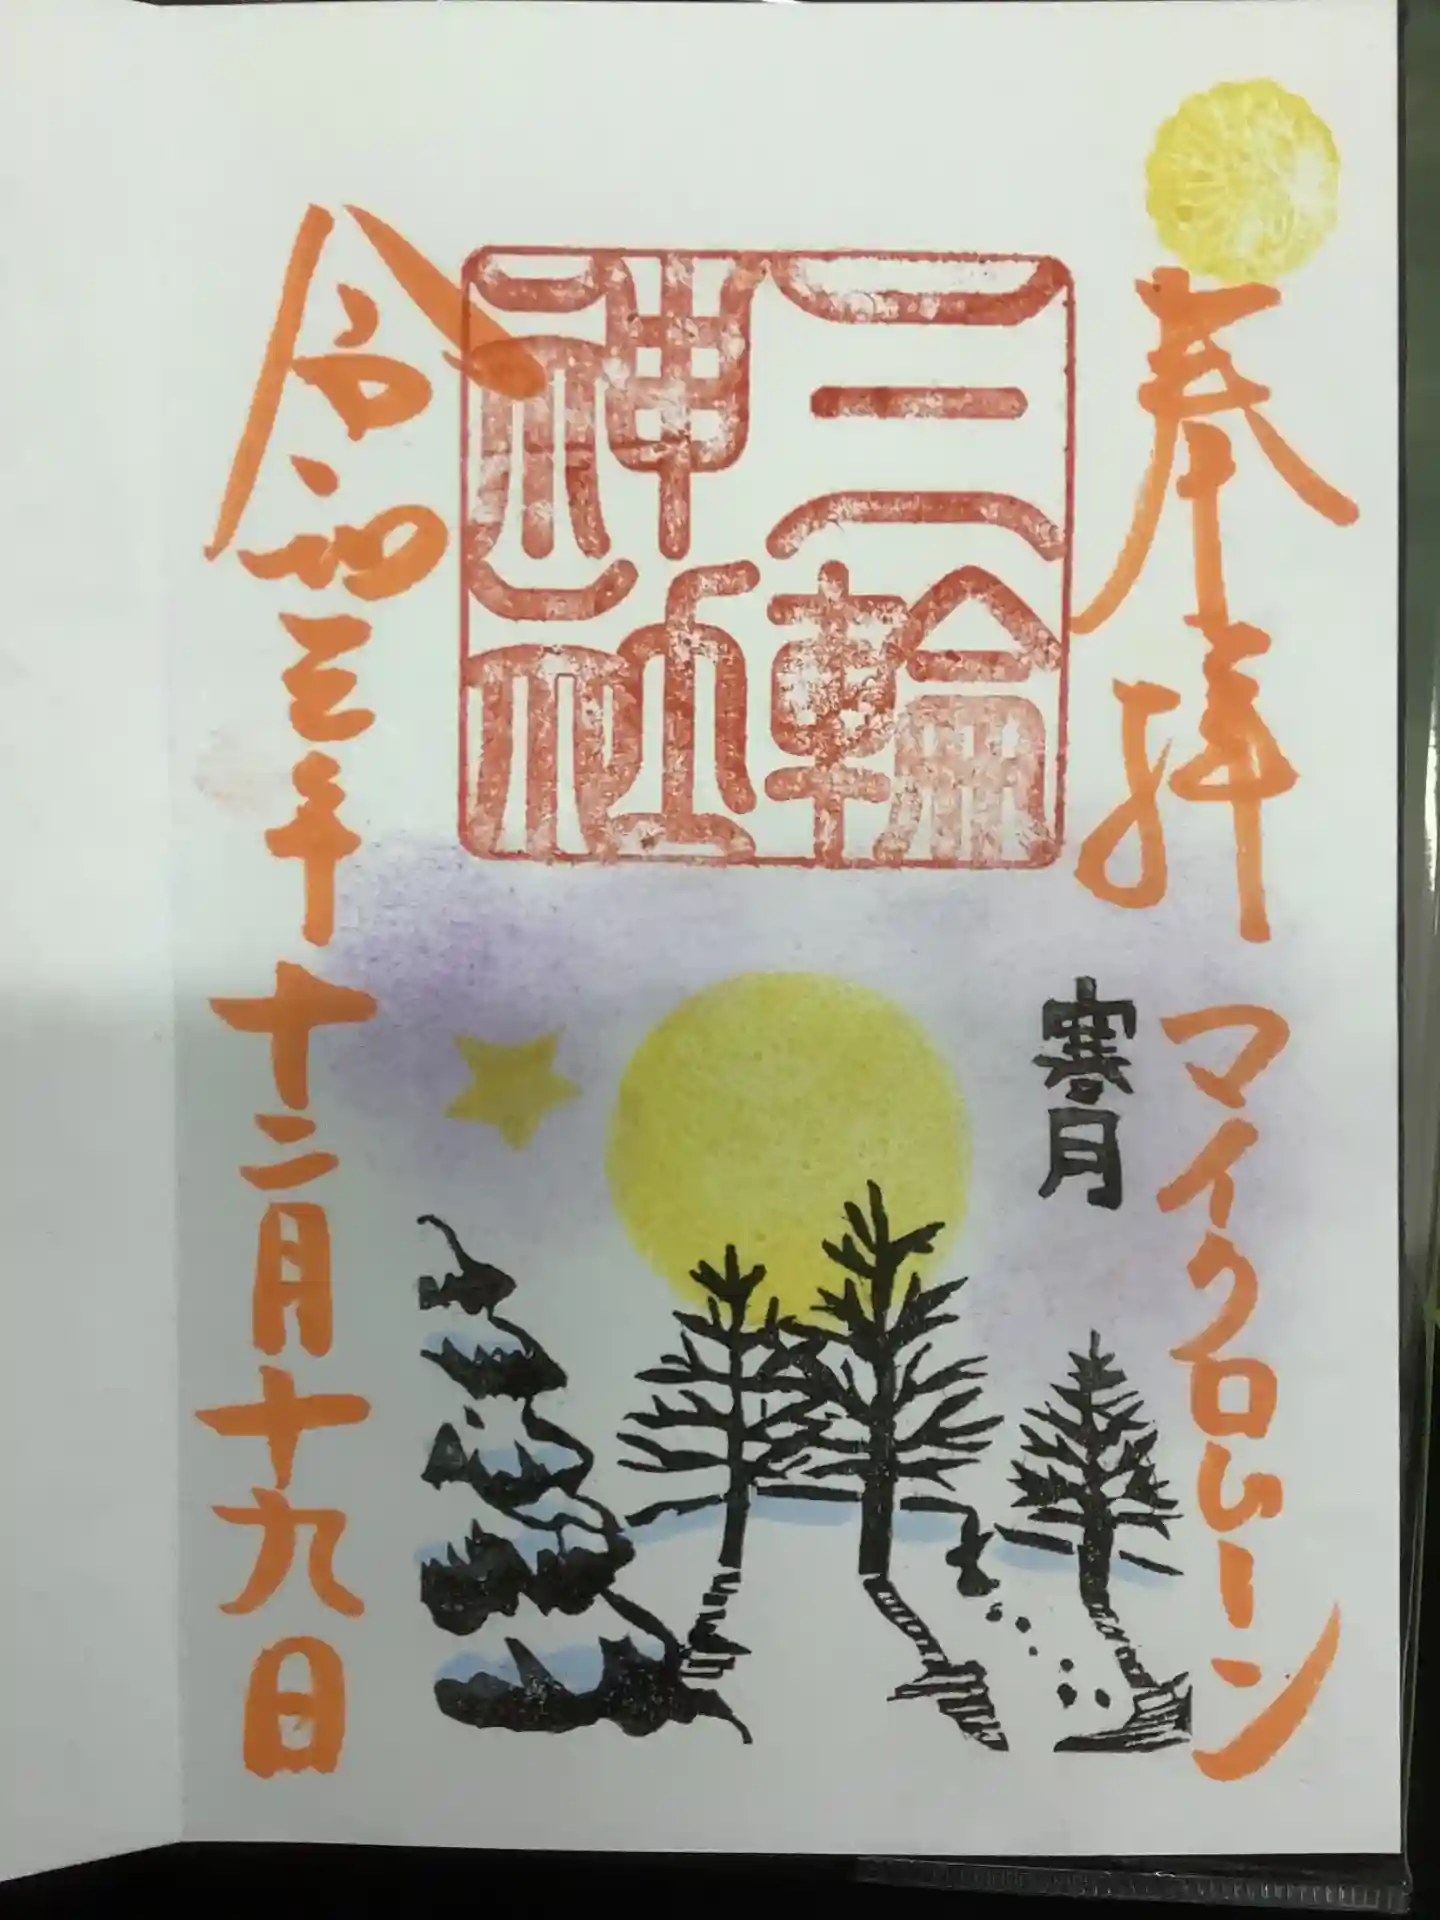 奉拝 マイクロムーン
寒月
三輪
神社
令和三年十二月十九日